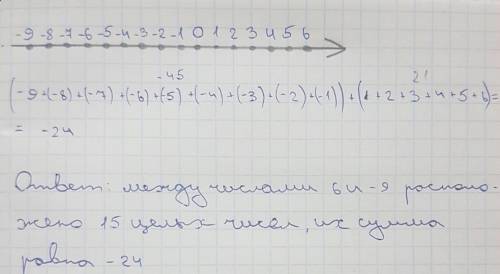 -9 -8 -7 -6 -5 -4 -3 -2 -1 0 1 2 3 4 5 6
-45 21
(-9+(-8)+(-7)+(-6)+(-5)+(-4)+(-3)+(-2)+(-1))+(1+2+3+4+5+6)=
= -24
Ответ: между числами 6 и -9 располо-
жено 15 целых чисел, их сумма
равна -24